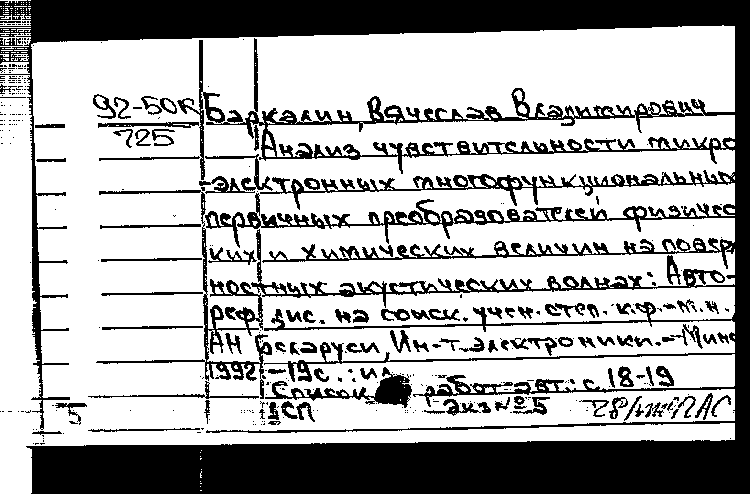 92-50к Баркалин, Вячеслав Владимирович
725
Анализ чувствительности микро
-электронных многофункциональных
первичных преобразователей физичес
ких и химических величин на поверх
ностных акустических волнах: Авто-
реф. дис. на соиск. учен. степ. к.ф.-м.н.
АН Беларуси, Ин-т электроники.-Минс
1992.-19с.:ил
Список работ авт.: с.18-19
1СП Экз №5
5